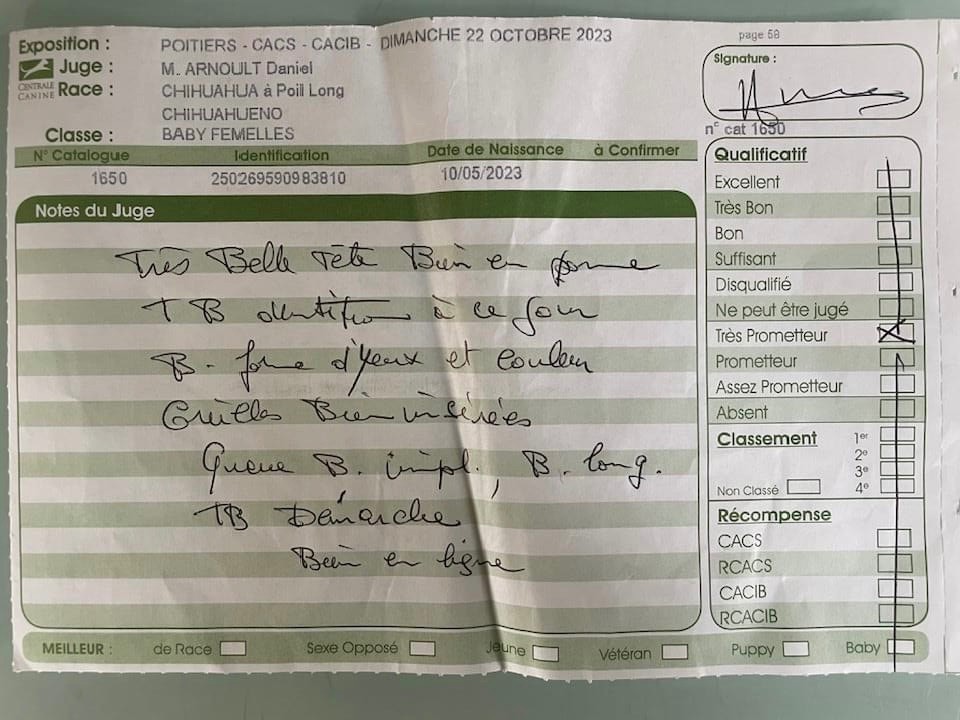 Exposition : POITIERS - CACS - CACIB - DIMANCHE 22 OCTOBRE 2023
page 58
Juge : M. ARNOULT Daniel
CENTRALE CANINE
Race : CHIHUAHUA à Poill Long
CHIHUAHUENO
Classe : BABY FEMELLES
Signature :
n° cat 1650
N° Catalogue Identification Date de Naissance à Confirmer
1650 250269590983810 10/05/2023
Notes du Juge
Très Belle Tête Bien en forme
TB dentition à ce jour
B. forme d'yeux et couleur
Oreilles Bien insérées
Queue B. impl., B. long.
TB Démarche
Bien en ligne
Qualificatif
Excellent
Très Bon
Bon
Suffisant
Disqualifié
Ne peut être jugé
Très Prometteur X
Prometteur
Assez Prometteur
Absent
Classement 1er
2e
3e
Non Classé 4e
Récompense
CACS
RCACS
CACIB
RCACIB
MEILLEUR : de Race Sexe Opposé Jeune Vétéran Puppy Baby